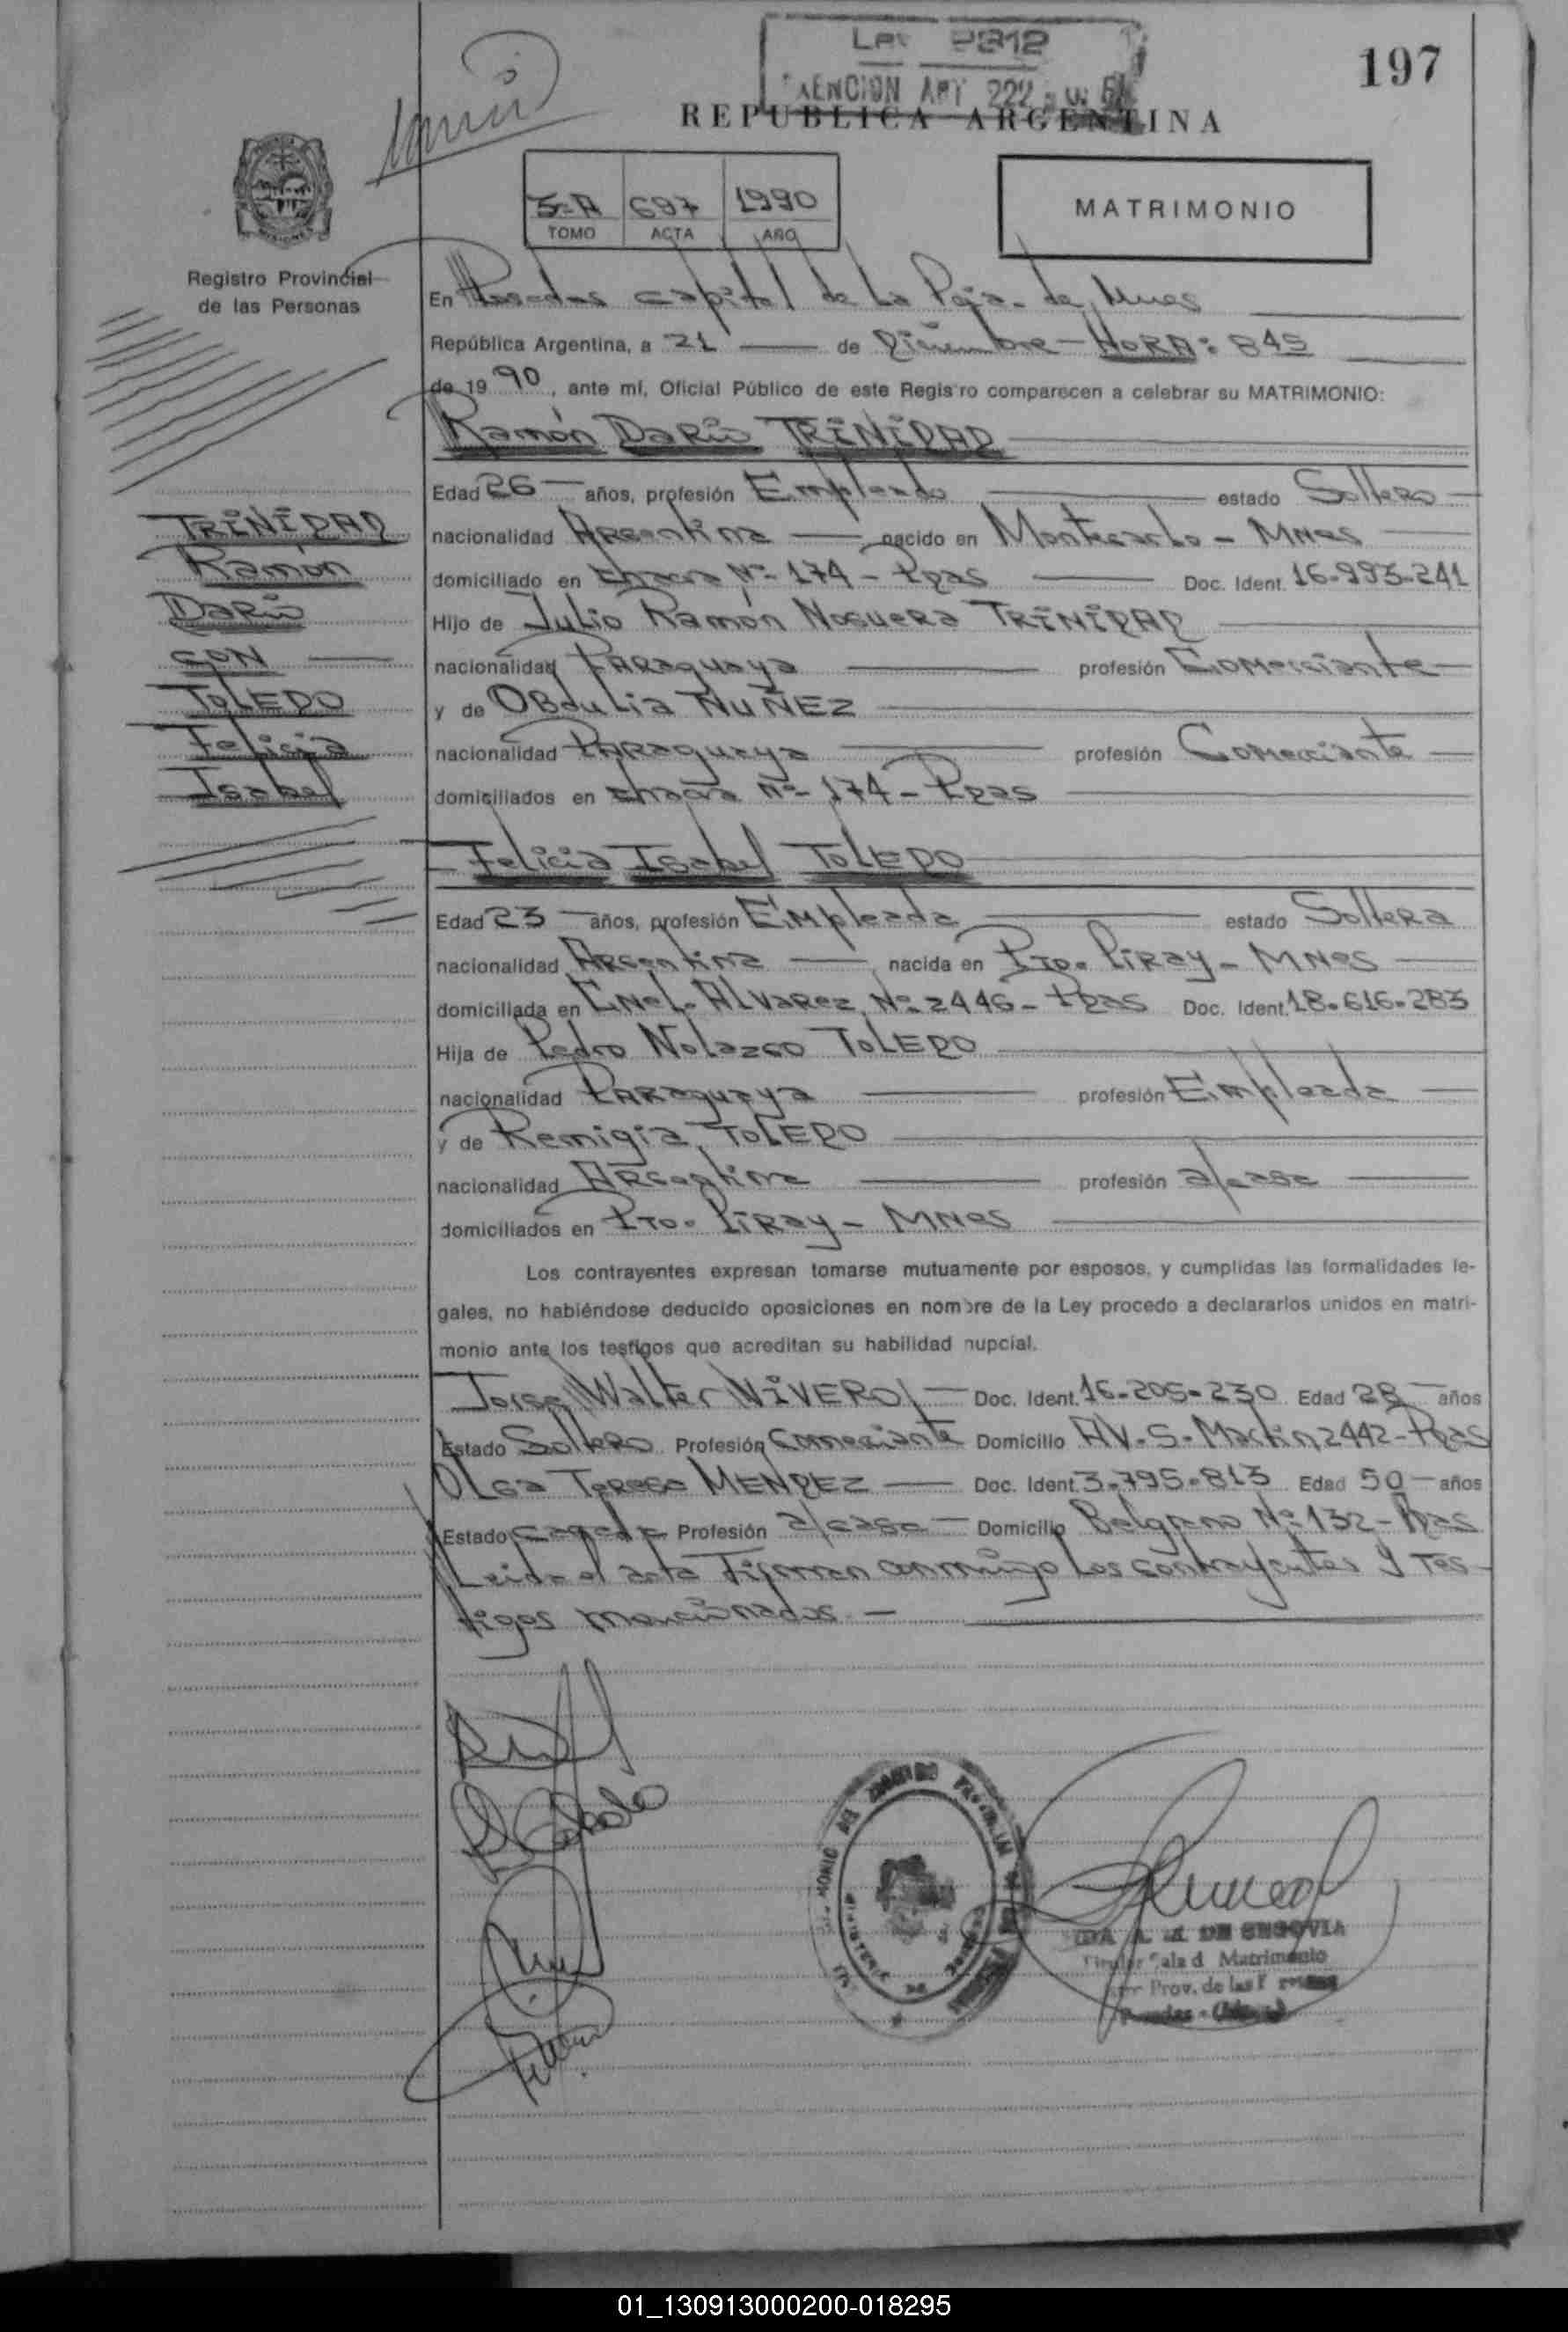 197
Ley 2312
EXENCION ART 222
REPUBLICA ARGENTINA
3-A 697 1990
TOMO ACTA AÑO
MATRIMONIO
Registro Provincial
de las Personas
En Posadas capital de La Pcia. de Mnes
República Argentina, a 21 de Diciembre - HORA: 845
de 1990, ante mí, Oficial Público de este Registro comparecen a celebrar su MATRIMONIO:
Ramón Darío TRINIDAD
Edad 26 años, profesión Empleado estado Soltero
nacionalidad Argentina nacido en Montecarlo - Mnes
domiciliado en chacra Nº 174 - Pdas Doc. Ident. 16-993-241
Hijo de Julio Ramón Noguera TRINIDAD
nacionalidad Paraguaya profesión Comerciante
y de Obdulia NUÑEZ
nacionalidad Paraguaya profesión Comerciante
domiciliados en chacra Nº 174 - Pdas
Felicia Isabel TOLEDO
Edad 23 años, profesión Empleada estado Soltera
nacionalidad Argentina nacida en Pto. Piray - Mnes
domiciliada en Cnel. Alvarez Nº 2446 - Pdas Doc. Ident. 18-616-283
Hija de Pedro Nolazco TOLEDO
nacionalidad Paraguaya profesión Empleada
y de Remigia TOLEDO
nacionalidad Argentina profesión a/casa
domiciliados en Pto. Piray - Mnes
Los contrayentes expresan tomarse mutuamente por esposos, y cumplidas las formalidades le-
gales, no habiéndose deducido oposiciones en nombre de la Ley procedo a declararlos unidos en matri-
monio ante los testigos que acreditan su habilidad nupcial.
Jorge Walter VIVERO Doc. Ident. 16-205-230 Edad 28 años
Estado Soltero Profesión Comerciante Domicilio AV. S. Martin 2442 - Pdas
Olga Teresa MENDEZ Doc. Ident. 3-795-813 Edad 50 años
Estado casada Profesión a/casa Domicilio Belgrano Nº 132 - Pdas
Leida el acta Firman conmigo Los contrayentes y Tes-
tigos mencionados -
TRINIDAD
Ramón
Darío
CON
TOLEDO
Felicia
Isabel
DE SEGOVIA
Titular Sala d Matrimonio
Prov. de las
01_130913000200-018295